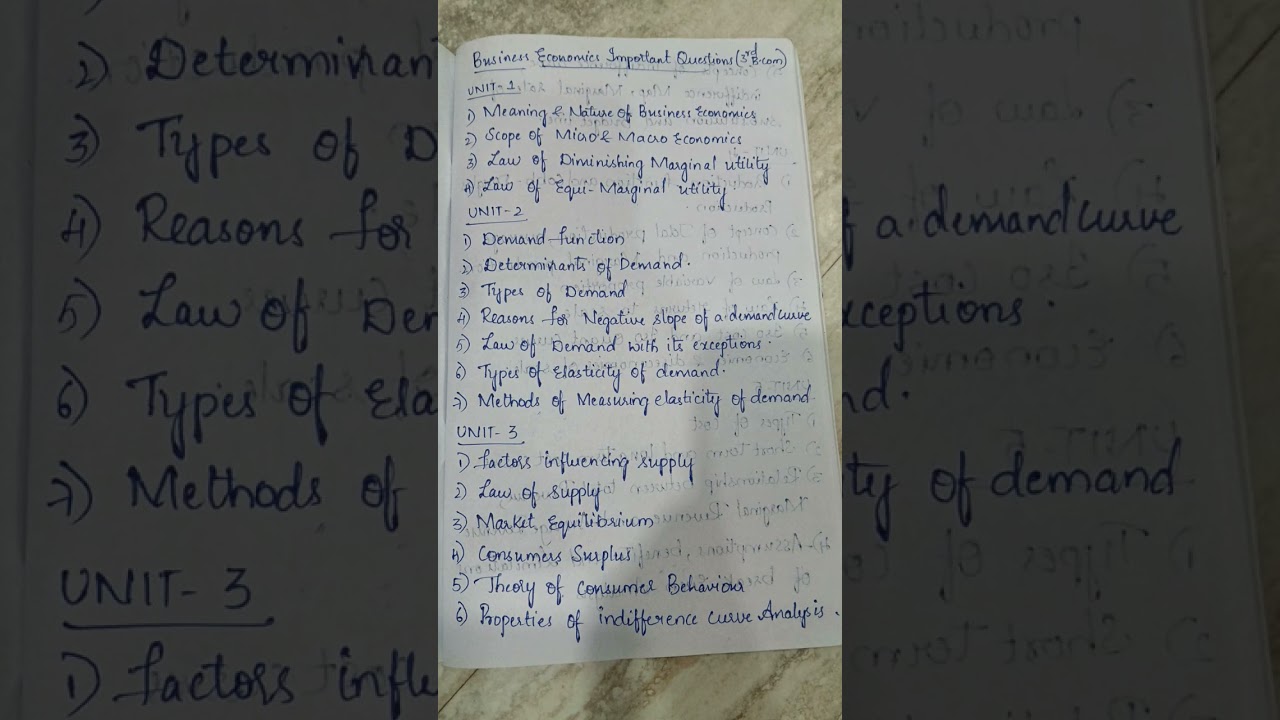 Business Economics Important Questions (3rd B.com)
UNIT-1
1) Meaning & Nature of Business Economics
2) Scope of Micro & Macro Economics
3) Law of Diminishing Marginal utility
4) Law of Equi-Marginal utility
UNIT-2
1) Demand function
2) Determinants of Demand.
3) Types of Demand
4) Reasons for Negative slope of a demand curve
5) Law of Demand with its exceptions.
6) Types of Elasticity of demand.
7) Methods of Measuring elasticity of demand
UNIT-3
1) factors influencing supply
2) Law of supply
3) Market Equilibrium
4) Consumers Surplus
5) Theory of Consumer Behaviour
6) Properties of indifference curve Analysis.